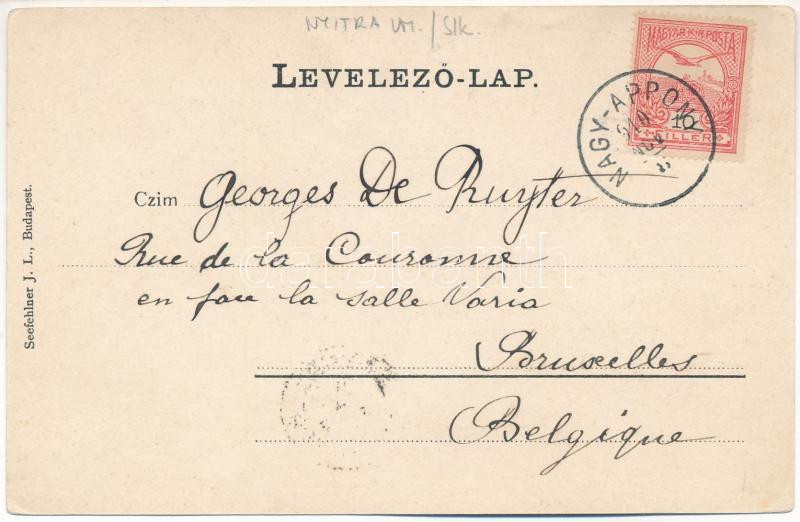 NYITRA VM. / Slk.
MAGYAR KIR. POSTA
LEVELEZŐ-LAP.
NAGY-APPONY
10
FILLER
Czim Georges De Ruyter
Rue de la Couronne
en face la salle Varia
Bruxelles
Belgique
Seefehlner J. L., Budapest.
darabanth